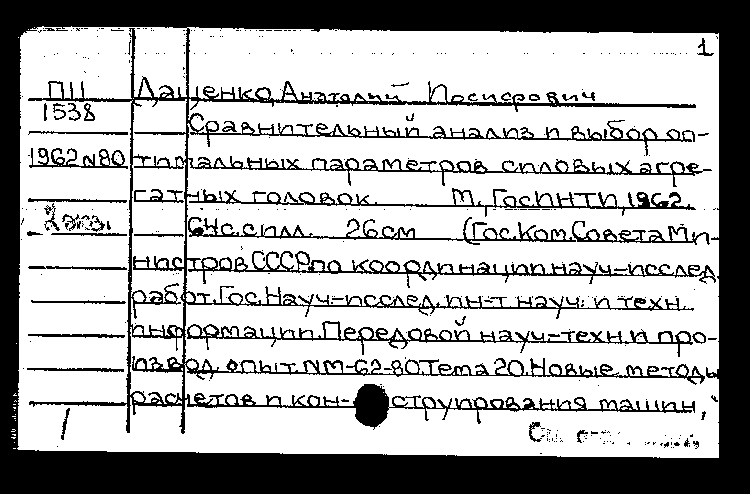 1
П11 Даценко, Анатолий Иосифович
1538
Сравнительный анализ и выбор оп-
1962 N80 тимальных параметров силовых агре-
гатных головок. М., ГосИНТИ, 1962.
2 экз. 64с. с илл. 26см (Гос. Ком. Совета Ми-
нистров СССР по координации науч-исслед.
работ. Гос. Науч-исслед. ин-т науч. и техн.
информации. Передовой науч-техн. и про-
извод. опыт. NМ-62-80. Тема 20. Новые методы
расчетов и кон-струирования машин,
См.